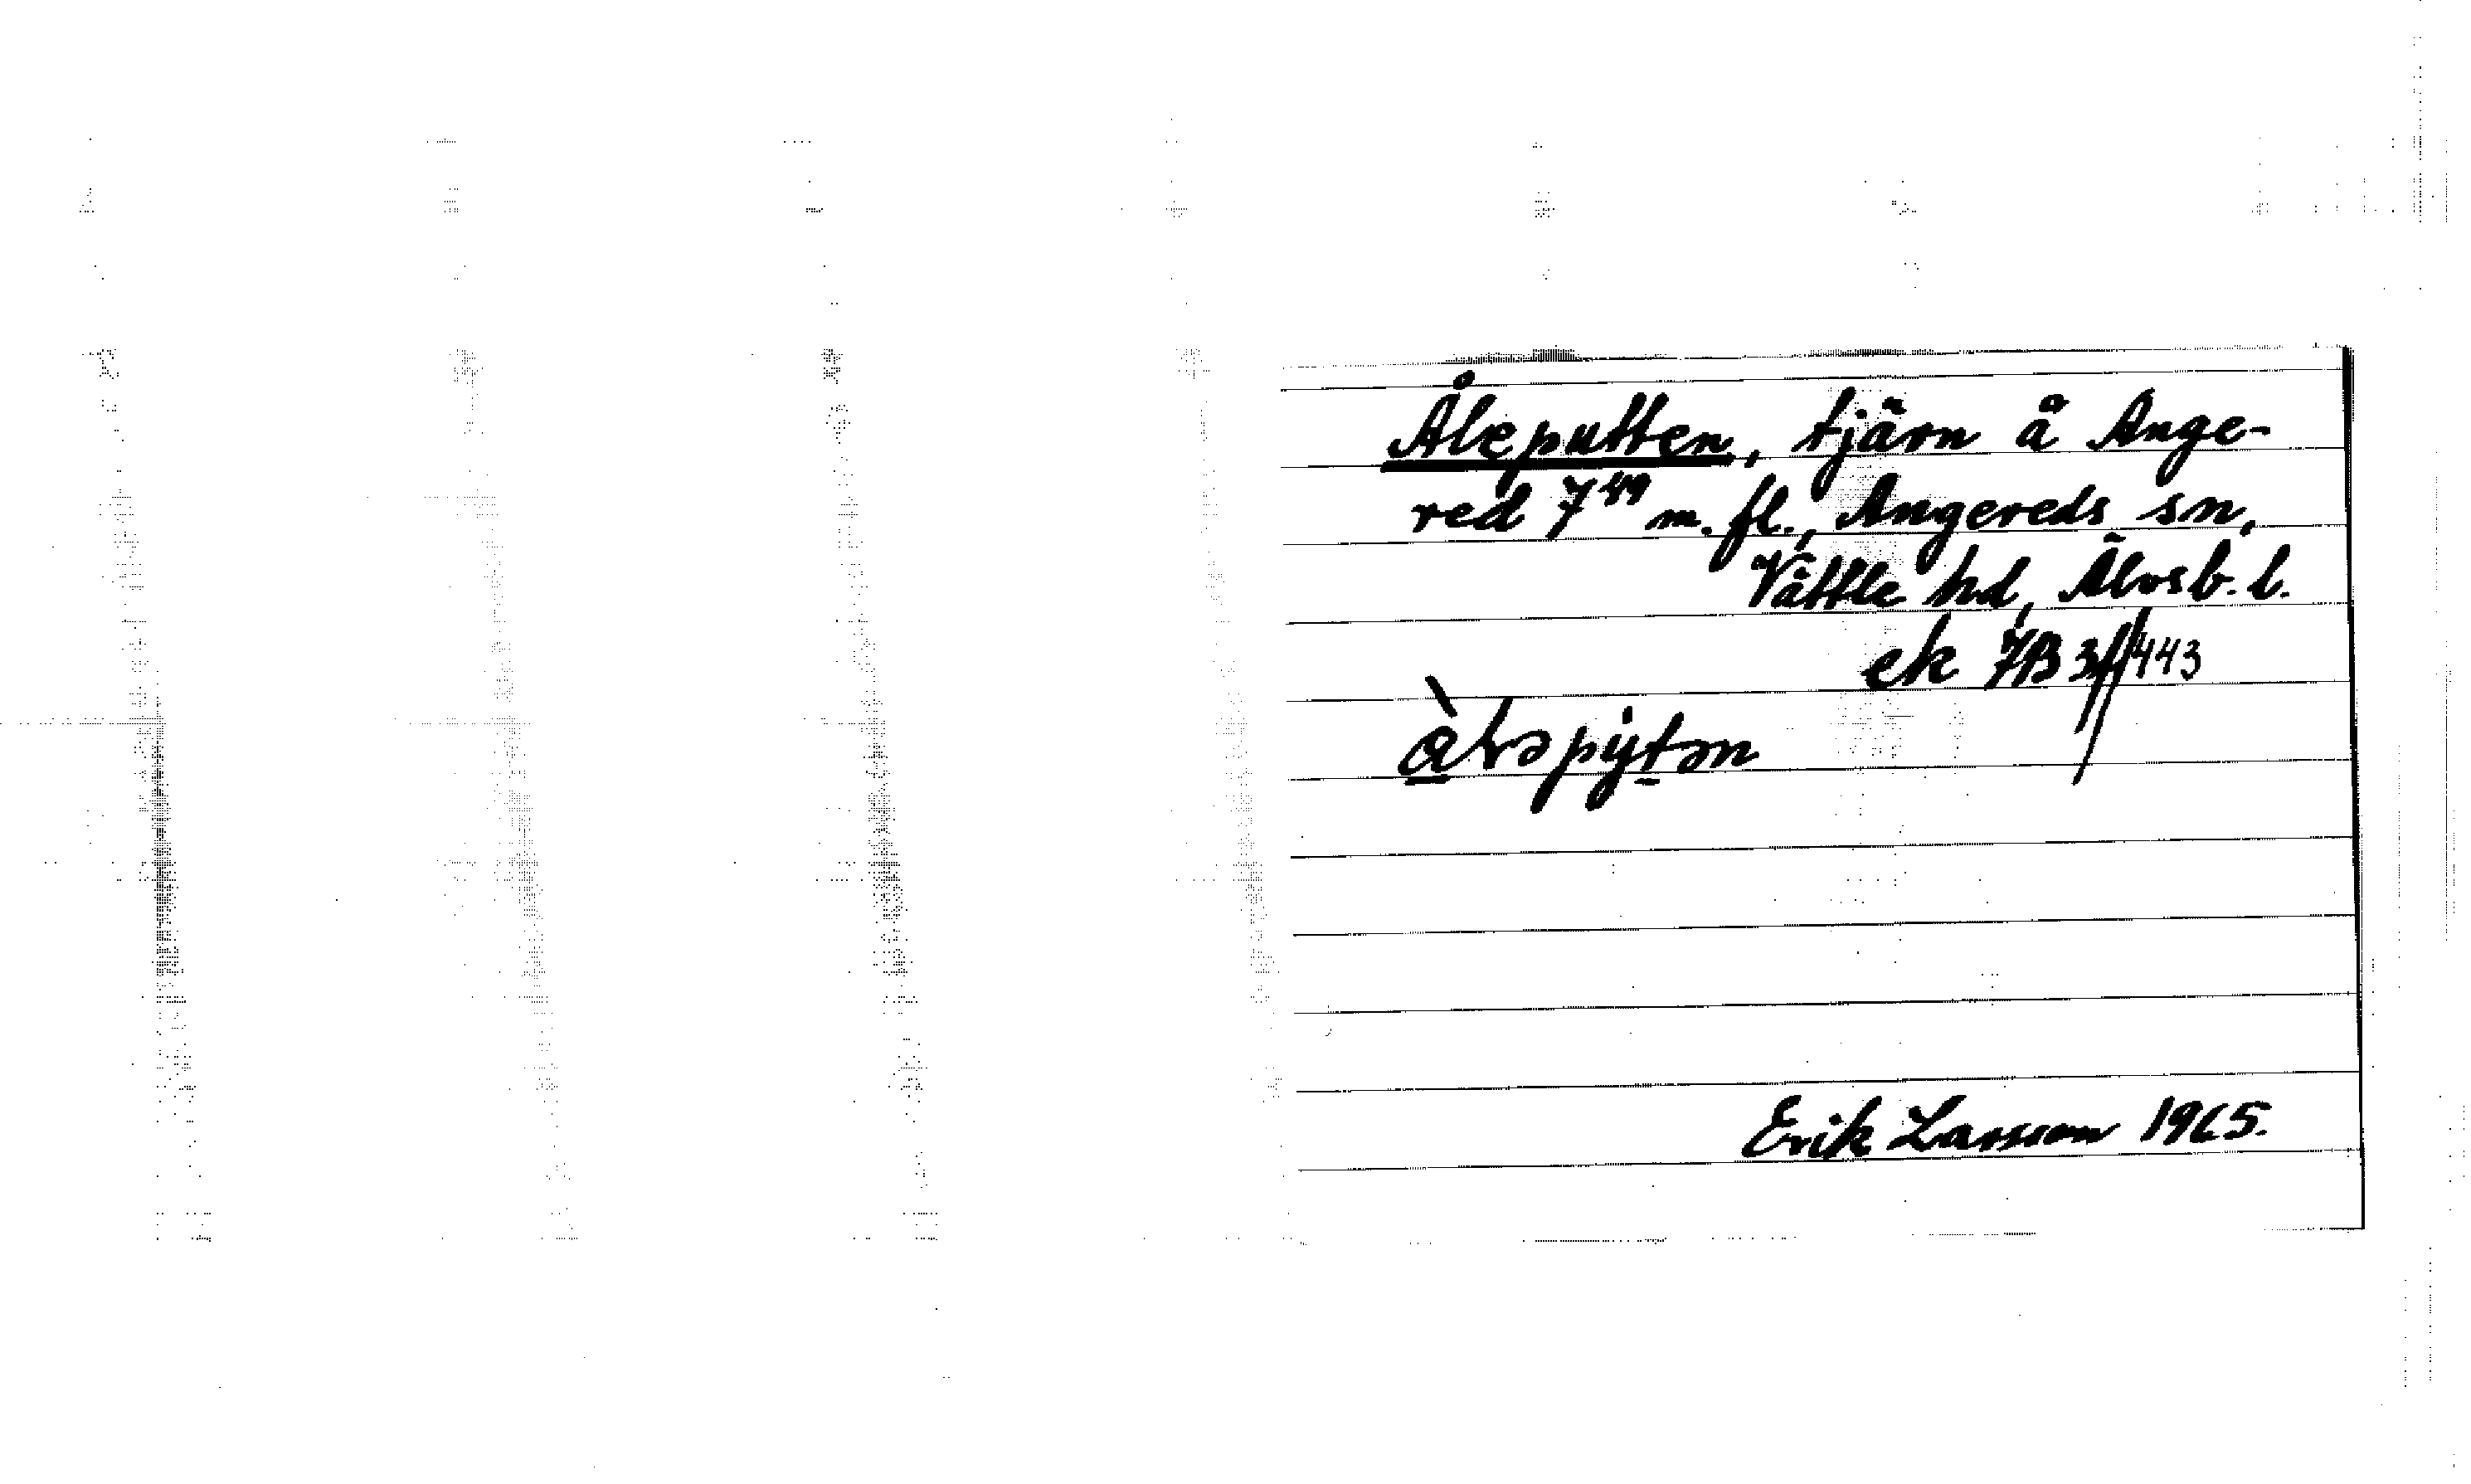 Åleputten, tjärn å Ange-
red 7⁴⁹ m. fl., Angereds sn,
Vättle hd, Älvsb. l.
ek 7B 3f//443
Erik Larsson 1965.